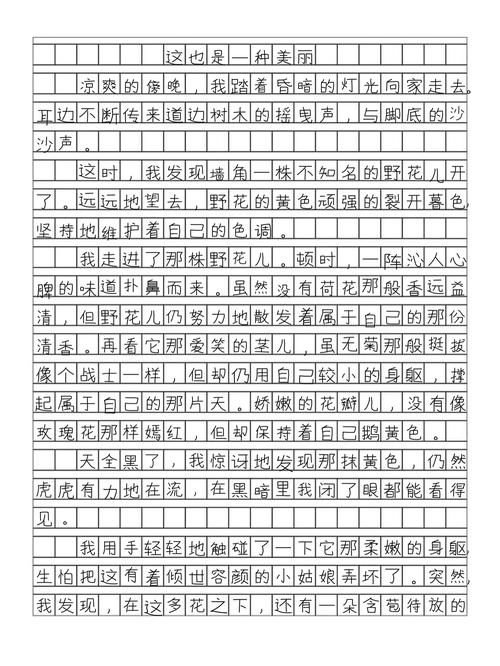 这也是一种美丽
凉爽的傍晚，我踏着昏暗的灯光向家走去。
耳边不断传来道边树木的摇曳声，与脚底的沙
沙声。
这时，我发现墙角一株不知名的野花儿开
了。远远地望去，野花的黄色顽强的裂开暮色，
坚持地维护着自己的色调。
我走进了那株野花儿。顿时，一阵沁人心
脾的味道扑鼻而来。虽然没有荷花那般香远益
清，但野花儿仍努力地散发着属于自己的那份
清香。再看它那爱笑的茎儿，虽无菊那般挺拔
像个战士一样，但却仍用自己较小的身躯，撑
起属于自己的那片天。娇嫩的花瓣儿，没有像
玫瑰花那样嫣红，但却保持着自己鹅黄色。
天全黑了，我惊讶地发现那抹黄色，仍然
虎虎有力地在流，在黑暗里我闭了眼都能看得
见。
我用手轻轻地触碰了一下它那柔嫩的身躯，
生怕把这有着倾世容颜的小姑娘弄坏了。突然，
我发现，在这多花之下，还有一朵含苞待放的